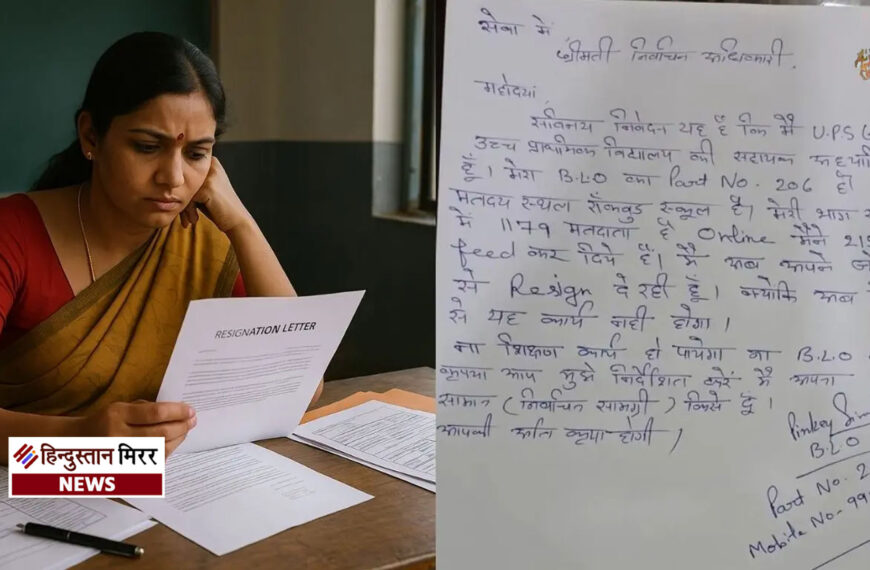 RESIGNATION LETTER
हिन्दुस्तान मिरर
NEWS
सेवा में
श्रीमती निर्वाचन अधिकारी,
महोदया
सविनय निवेदन यह है कि मैं U.P.S
उच्च प्राथमिक विद्यालय की सहायक
हूँ। मेरा B.L.O का Part No. 206 है
मतदय स्थल रॉकवुड स्कूल है। मेरी भाग
में 1179 मतदाता है Online मैंने 21
feed कर दिये है। मैं अब अपने
से Resign दे रही हूँ। क्योकि अब
से यह कार्य नही होगा।
ना शिक्षण कार्य हो पायेगा ना B.L.O
कृपया आप मुझे निर्देशित करें मैं अपना
सामान (निर्वाचन सामग्री) किसे दूं।
आपकी अति कृपा होगी।
Pinkey
B.L.O
Part No. 2
Mobile No- 99